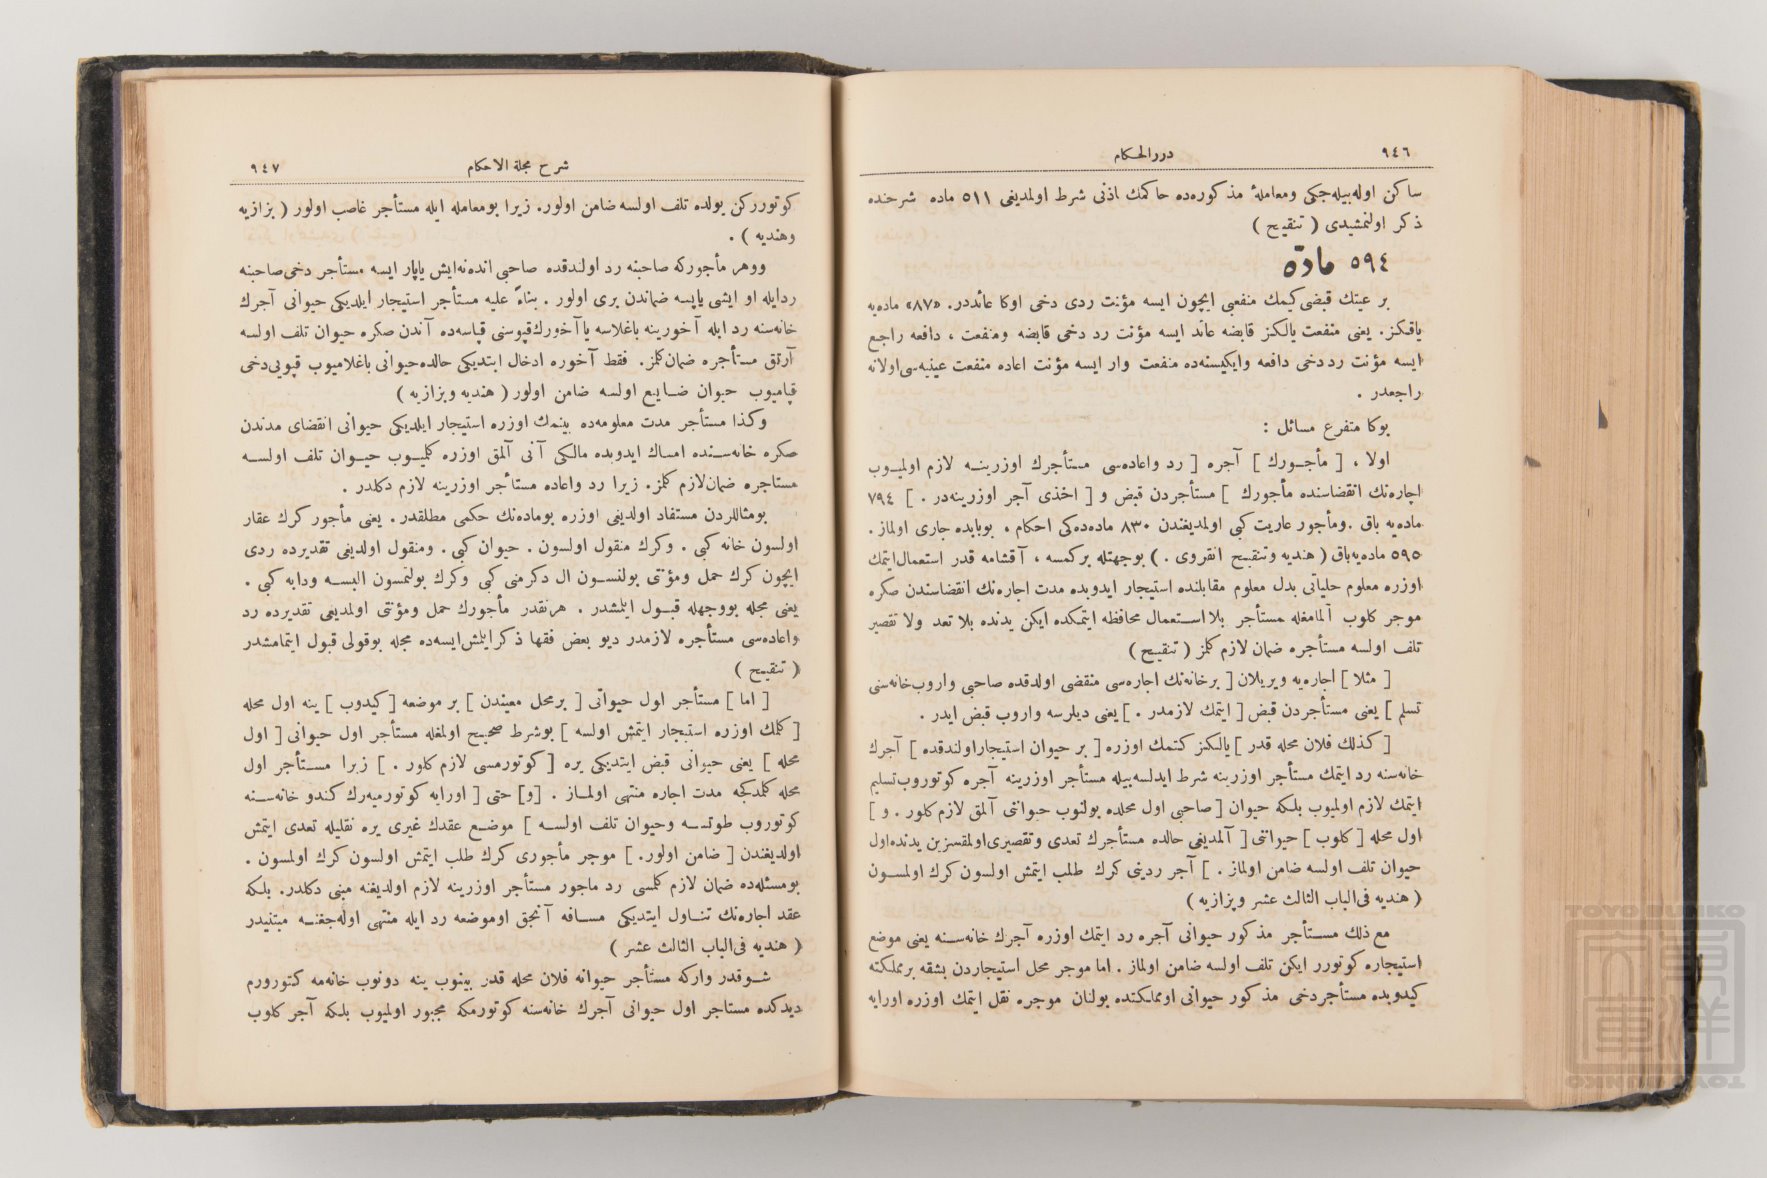 ٩٤٦
دررالحكام
ساكن اوله‌بيله‌جكى ومعاملهٔ مذكوره‌ده حاكمك اذنى شرط اولمديغى ٥١١ ماده شرحنده
ذكر اولنمشيدى ( تنقيح )
٥٩٤ مادّه
بر عينك قبضى كيمك منفعتى ايچون ايسه مؤنت ردى دخى اوكا عائددر. «٨٧» ماده‌يه
باقكز. يعنى منفعت يالكز قابضه عائد ايسه مؤنت رد دخى قابضه ومنفعت ، دافعه راجع
ايسه مؤنت رد دخى دافعه وايكيسنه‌ده منفعت وار ايسه مؤنت اعاده منفعت عينيه‌سى اولانه
راجعدر .
بوكا متفرع مسائل :
اولا ، [ مأجورك ] آجره [ رد واعاده‌سى مستأجرك اوزرينه لازم اولميوب
اجاره‌نك انقضاسنده مأجورك ] مستأجردن قبض و [ اخذى آجر اوزرينه‌در . ] ٧٩٤
ماده‌يه باق .ومأجور عاريت كبى اولمديغندن ٨٣٠ ماده‌ده‌كى احكام ، بوبابده جارى اولماز.
٥٩٥ ماده‌يه‌باق ( هنديه وتنقيح انقروى . ) بوجهتله بركمسه ، آقشامه قدر استعمال‌ايتمك
اوزره معلوم حلياتى بدل معلوم مقابلنده استيجار ايدوبده مدت اجاره‌نك انقضاسندن صكره
موجر كلوب آلمامغله مستأجر بلا استعمال محافظه ايتمكده ايكن يدنده بلا تعد ولا تقصير
تلف اولسه مستأجره ضمان لازم كلمز ( تنقيح )
[ مثلا ] اجاره‌يه ويريلان [ برخانه‌نك اجاره‌سى منقضى اولدقده صاحبى واروب‌خانه‌سنى
تسلم ] يعنى مستأجردن قبض [ ايتمك لازمدر . ] يعنى ديلرسه واروب قبض ايدر .
[ كذلك فلان محله قدر ] يالكز كتمك اوزره [ بر حيوان استيجاراولندقده ] آجرك
خانه‌سنه رد ايتمك مستأجر اوزرينه شرط ايدلسه‌بيله مستأجر اوزرينه آجره كوتوروب‌تسليم
ايتمك لازم اولميوب بلكه حيوان [ صاحبى اول محلده بولنوب حيوانى آلمق لازم كلور . و ]
اول محله [ كلوب ] حيوانى [ آلمديغى حالده مستأجرك تعدى وتقصيرى‌اولمقسزين يدنده‌اول
حيوان تلف اولسه ضامن اولماز . ] آجر ردينى كرك طلب ايتمش اولسون كرك اولمسون
( هنديه فى‌الباب الثالث عشر وبزازيه )
مع ذلك مستأجر مذكور حيوانى آجره رد ايتمك اوزره آجرك خانه‌سنه يعنى موضع
استيجاره كوتورر ايكن تلف اولسه ضامن اولماز . اما موجر محل استيجاردن بشقه برمملكته
كيدوبده مستأجردخى مذكور حيوانى اومملكتده بولنان موجره نقل ايتمك اوزره اورايه
شرح مجلة الاحكام
٩٤٧
كوتورركن يولده تلف اولسه ضامن اولور. زيرا بومعامله ايله مستأجر غاصب اولور ( بزازيه
وهنديه ) .
ووهر مأجوركه صاحبنه رد اولندقده صاحبى انده‌نه‌ايش ياپار ايسه مستأجر دخى‌صاحبنه
ردايله او ايشى ياپسه ضماندن برى اولور . بناءً عليه مستأجر استيجار ايلديكى حيوانى آجرك
خانه‌سنه رد ايله آخورينه باغلاسه ياآخورك‌قپوسنى قپاسه‌ده آندن صكره حيوان تلف اولسه
آرتق مستأجره ضمان‌كلمز. فقط آخوره ادخال ايتديكى حالده‌حيوانى باغلاميوب قپويى‌دخى
قپاميوب حيوان ضايع اولسه ضامن اولور ( هنديه وبزازيه )
وكذا مستأجر مدت معلومه‌ده بينمك اوزره استيجار ايلديكى حيوانى انقضاى مدتدن
صكره خانه‌سنده امساك ايدوبده مالكى آنى آلمق اوزره كلميوب حيوان تلف اولسه
مستاجره ضمان‌لازم كلمز. زيرا رد واعاده مستأجر اوزرينه لازم دكلدر .
بومثاللردن مستفاد اولديغى اوزره بوماده‌نك حكمى مطلقدر. يعنى مأجور كرك عقار
اولسون خانه كبى . وكرك منقول اولسون . حيوان كبى . ومنقول اولديغى تقديرده ردى
ايچون كرك حمل ومؤنتى بولنسون ال دكرمنى كبى وكرك بولنمسون البسه ودابه كبى .
يعنى مجله بووجهله قبول ايتمشدر . هرنقدر مأجورك حمل ومؤنتى اولمديغى تقديرده رد
واعاده‌سى مستأجره لازمدر ديو بعض فقها ذكرايلمش‌ايسه‌ده مجله بوقولى قبول ايتمامشدر
( تنقيح )
[ اما ] مستأجر اول حيوانى [ برمحل معيندن ] بر موضعه [ كيدوب ] ينه اول محله
[ كلمك اوزره استيجار ايتمش اولسه ] بوشرط صحيح اولمغله مستأجر اول حيوانى [ اول
محله ] يعنى حيوانى قبض ايتديكى يره [ كوتورمسى لازم كلور . ] زيرا مستأجر اول
محله كلمدكجه مدت اجاره منتهى اولماز . [و] حتى [ اورايه كوتورميه‌رك كندو خانه‌سنه
كوتوروب طوتسه وحيوان تلف اولسه ] موضع عقدك غيرى يره نقليله تعدى ايتمش
اولديغندن [ ضامن اولور. ] موجر مأجورى كرك طلب ايتمش اولسون كرك اولمسون .
بومسئله‌ده ضمان لازم كلمسى رد ماجور مستأجر اوزرينه لازم اولديغنه مبنى دكلدر. بلكه
عقد اجاره‌نك تناول ايتديكى مسافه آنجق اوموضعه رد ايله منتهى اوله‌جغنه مبتنيدر
( هنديه فى‌الباب الثالث عشر )
شوقدر واركه مستأجر حيوانه فلان محله قدر بينوب ينه دونوب خانه‌مه كتورورم
ديدكده مستاجر اول حيوانى آجرك خانه‌سنه كوتورمكه مجبور اولميوب بلكه آجر كلوب